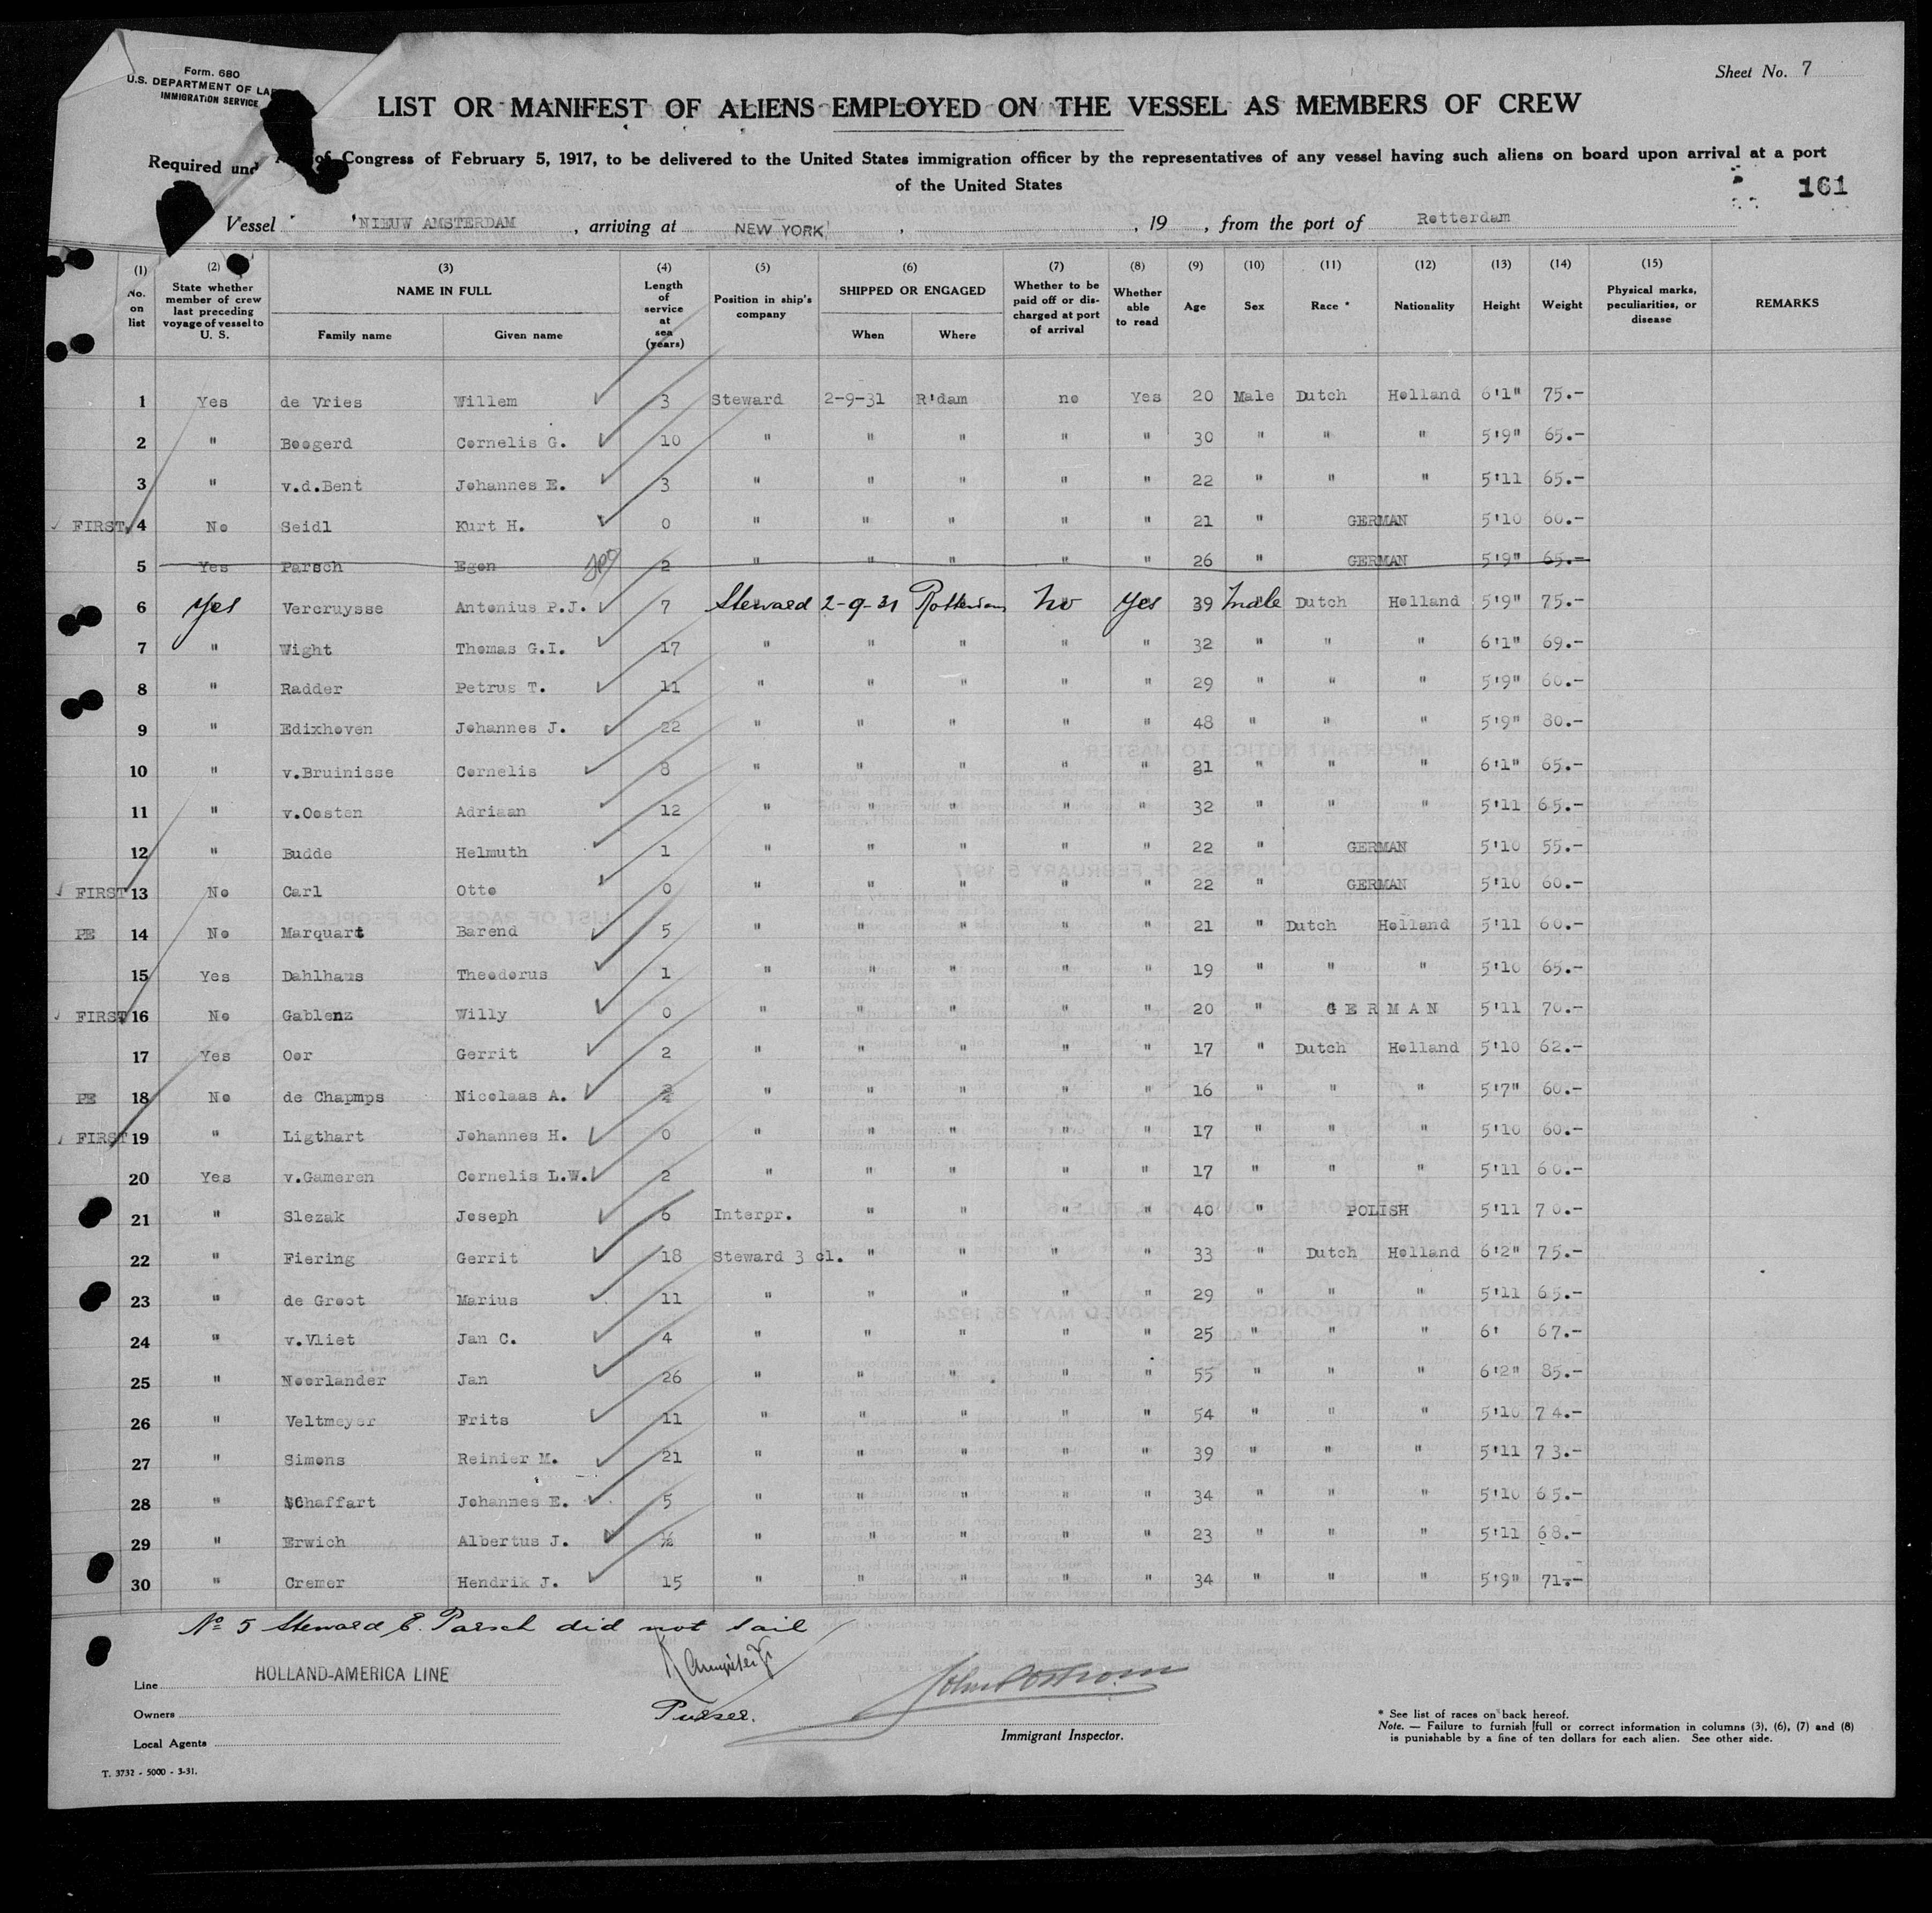 Form. 680
U.S. DEPARTMENT OF LA
IMMIGRATION SERVICE
Sheet No. 7
LIST OR MANIFEST OF ALIENS EMPLOYED ON THE VESSEL AS MEMBERS OF CREW
Required und of Congress of February 5, 1917, to be delivered to the United States immigration officer by the representatives of any vessel having such aliens on board upon arrival at a port
of the United States
161
Vessel 'NIEUW AMSTERDAM , arriving at NEW YORK , , 19 , from the port of Rotterdam
(1) No. on list (2) State whether member of crew last preceding voyage of vessel to U. S. (3) NAME IN FULL Family name Given name (4) Length of service at sea (years) (5) Position in ship's company (6) SHIPPED OR ENGAGED When Where (7) Whether to be paid off or discharged at port of arrival (8) Whether able to read (9) Age (10) Sex (11) Race * (12) Nationality (13) Height (14) Weight (15) Physical marks, peculiarities, or disease REMARKS
1 Yes de Vries Willem 3 Steward 2-9-31 R'dam no Yes 20 Male Dutch Holland 6'1" 75.-
2 " Boogerd Cornelis G. 10 " " " " " 30 " " " 5'9" 65.-
3 " v.d.Bent Johannes E. 3 " " " " " 22 " " " 5'11 65.-
FIRST 4 No Seidl Kurt H. 0 " " " " " 21 " GERMAN 5'10 60.-
5 Yes Parsch Egon 2 " " " " " 26 " GERMAN 5'9" 65.-
6 Yes Vercruysse Antonius P.J. 7 Steward 2-9-31 Rotterdam No Yes 39 Male Dutch Holland 5'9" 75.-
7 " Wight Thomas G.I. 17 " " " " " 32 " " " 6'1" 69.-
8 " Radder Petrus T. 11 " " " " " 29 " " " 5'9" 60.-
9 " Edixhoven Johannes J. 22 " " " " " 48 " " " 5'9" 80.-
10 " v.Bruinisse Cornelis 8 " " " " " 21 " " " 6'1" 65.-
11 " v.Oosten Adriaan 12 " " " " " 32 " " " 5'11 65.-
12 " Budde Helmuth 1 " " " " " 22 " GERMAN 5'10 55.-
FIRST 13 No Carl Otto 0 " " " " " 22 " GERMAN 5'10 60.-
PE 14 No Marquart Barend 5 " " " " " 21 " Dutch Holland 5'11 60.-
15 Yes Dahlhaus Theodorus 1 " " " " " 19 " " " 5'10 65.-
FIRST 16 No Gablenz Willy 0 " " " " " 20 " GERMAN 5'11 70.-
17 Yes Oor Gerrit 2 " " " " " 17 " Dutch Holland 5'10 62.-
PE 18 No de Chapmps Nicolaas A. " " " " " 16 " " " 5'7" 60.-
FIRST 19 " Ligthart Johannes H. 0 " " " " " 17 " " " 5'10 60.-
20 Yes v.Gameren Cornelis L.W. 2 " " " " " 17 " " " 5'11 60.-
21 " Slezak Joseph 6 Interpr. " " " " 40 " POLISH 5'11 70.-
22 " Fiering Gerrit 18 Steward 3 cl. " " " " 33 " Dutch Holland 6'2" 75.-
23 " de Groot Marius 11 " " " " " 29 " " " 5'11 65.-
24 " v.Vliet Jan C. 4 " " " " " 25 " " " 6' 67.-
25 " Noorlander Jan 26 " " " " " 55 " " " 6'2" 85.-
26 " Veltmeyer Frits 11 " " " " " 54 " " " 5'10 74.-
27 " Simons Reinier M. 21 " " " " " 39 " " " 5'11 73.-
28 " SChaffart Johannes E. 5 " " " " " 34 " " " 5'10 65.-
29 " Erwich Albertus J. ½ " " " " " 23 " " " 5'11 68.-
30 " Cremer Hendrik J. 15 " " " " " 34 " " " 5'9" 71.-
No 5 Steward E. Parsch did not sail
Line HOLLAND-AMERICA LINE
Owners
Local Agents
Purser.
Immigrant Inspector.
* See list of races on back hereof.
Note. — Failure to furnish full or correct information in columns (3), (6), (7) and (8)
is punishable by a fine of ten dollars for each alien. See other side.
T. 3732 - 5000 - 3-31.